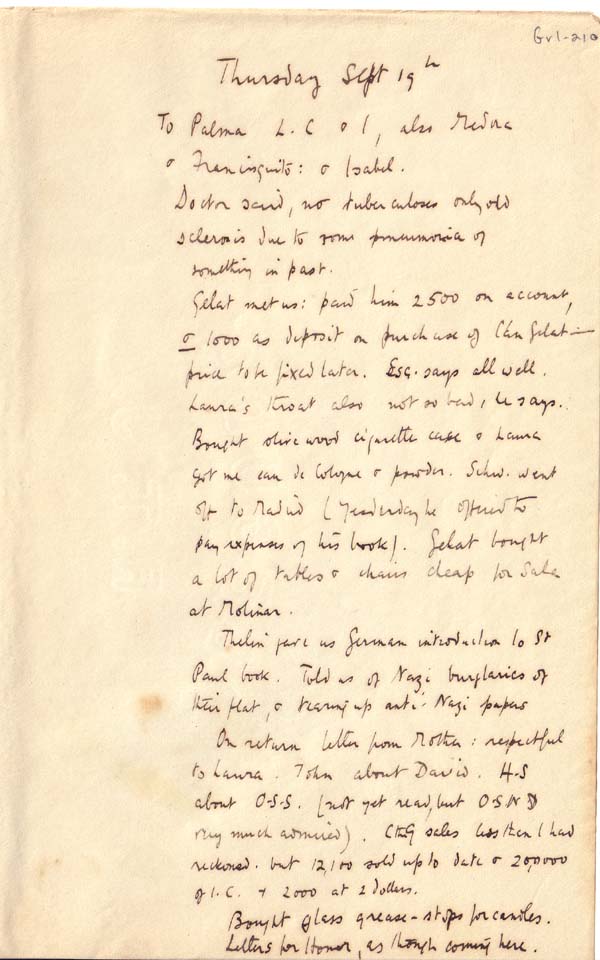 Gvl-210
Thursday Sept 19th
To Palma L.C & I, also Medora
& Francisquito: & Isabel.
Doctor said, no tuberculoses only old
sclerosis due to some pneumonia or
something in past.
Gelat met us: paid him 2500 on account,
& 1000 as deposit on purchase of C'án Gelat —
price to be fixed later. Esq. says all well.
Laura's throat also not so bad, he says.
Bought olive wood cigarette case & Laura
got me eau de Cologne & powder. Schw. went
off to Madrid (Yesterday he offered to
pay expenses of his book). Gelat bought
a lot of tables & chairs cheap for Sala
at Molinar.
Thelin gave us German introduction to St
Paul book. Told us of Nazi burglaries of
their flat, & tearing up anti-Nazi papers
On return letter from Mother: respectful
to Laura. John about David. H-S
about O-S-S. (not yet read, but O-S-N
very much admired). CtG sales less than I had
reckoned. but 12,100 sold up to date & 20,0000
of I.C. + 2000 at 2 dollars.
Bought glass grease-stops for candles.
Letters for Honor, as though coming here.